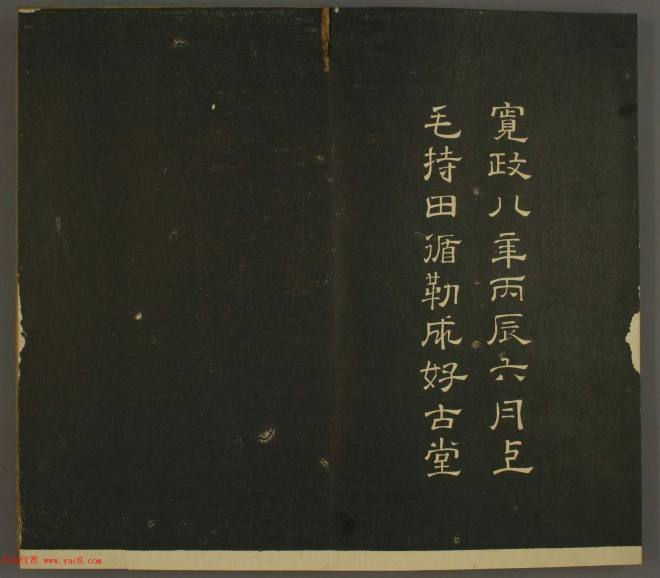 寛政八年丙辰六月上
毛持田循勒成好古堂
欣赏 www.yac8.com